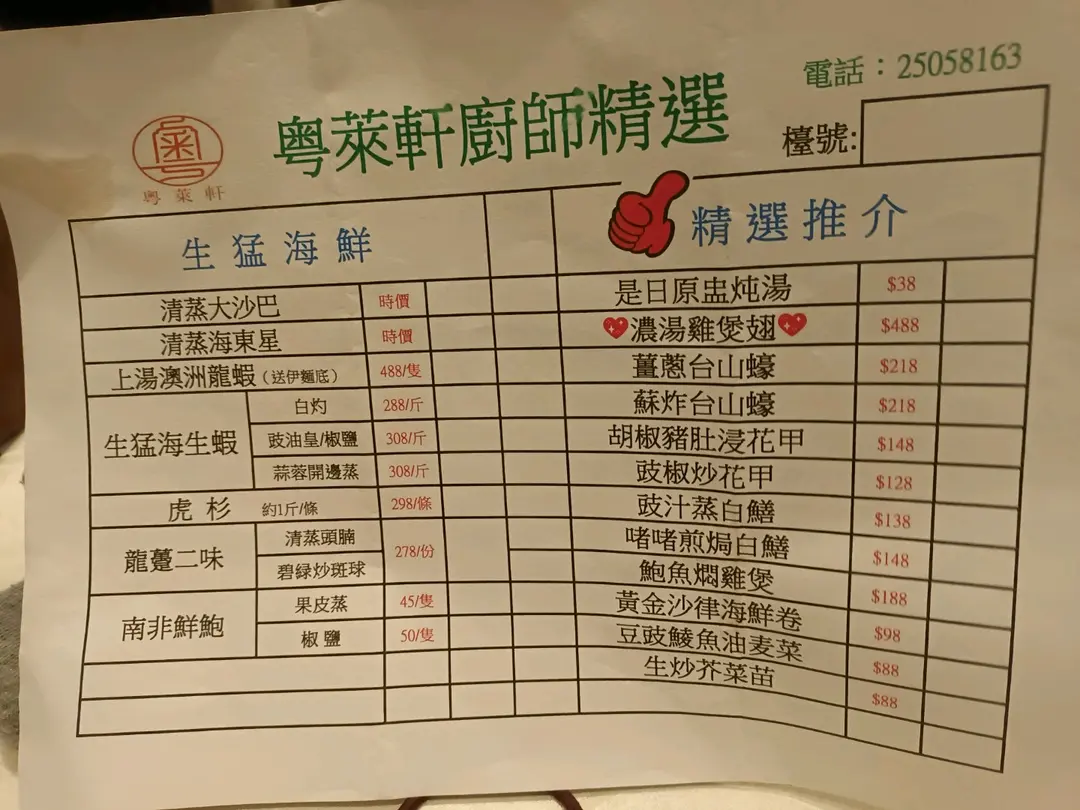 電話：25058163
粵萊軒廚師精選
檯號:
粵萊軒
生猛海鮮
清蒸大沙巴 時價
清蒸海東星 時價
上湯澳洲龍蝦（送伊麵底） 488/隻
生猛海生蝦 白灼 288/斤
豉油皇/椒鹽 308/斤
蒜蓉開邊蒸 308/斤
虎杉 約1斤/條 298/條
龍躉二味 清蒸頭腩 278/份
碧綠炒斑球
南非鮮鮑 果皮蒸 45/隻
椒鹽 50/隻
精選推介
是日原盅炖湯 $38
濃湯雞煲翅 $488
薑蔥台山蠔 $218
蘇炸台山蠔 $218
胡椒豬肚浸花甲 $148
豉椒炒花甲 $128
豉汁蒸白鱔 $138
啫啫煎焗白鱔 $148
鮑魚燜雞煲 $188
黃金沙律海鮮卷 $98
豆豉鯪魚油麦菜 $88
生炒芥菜苗 $88